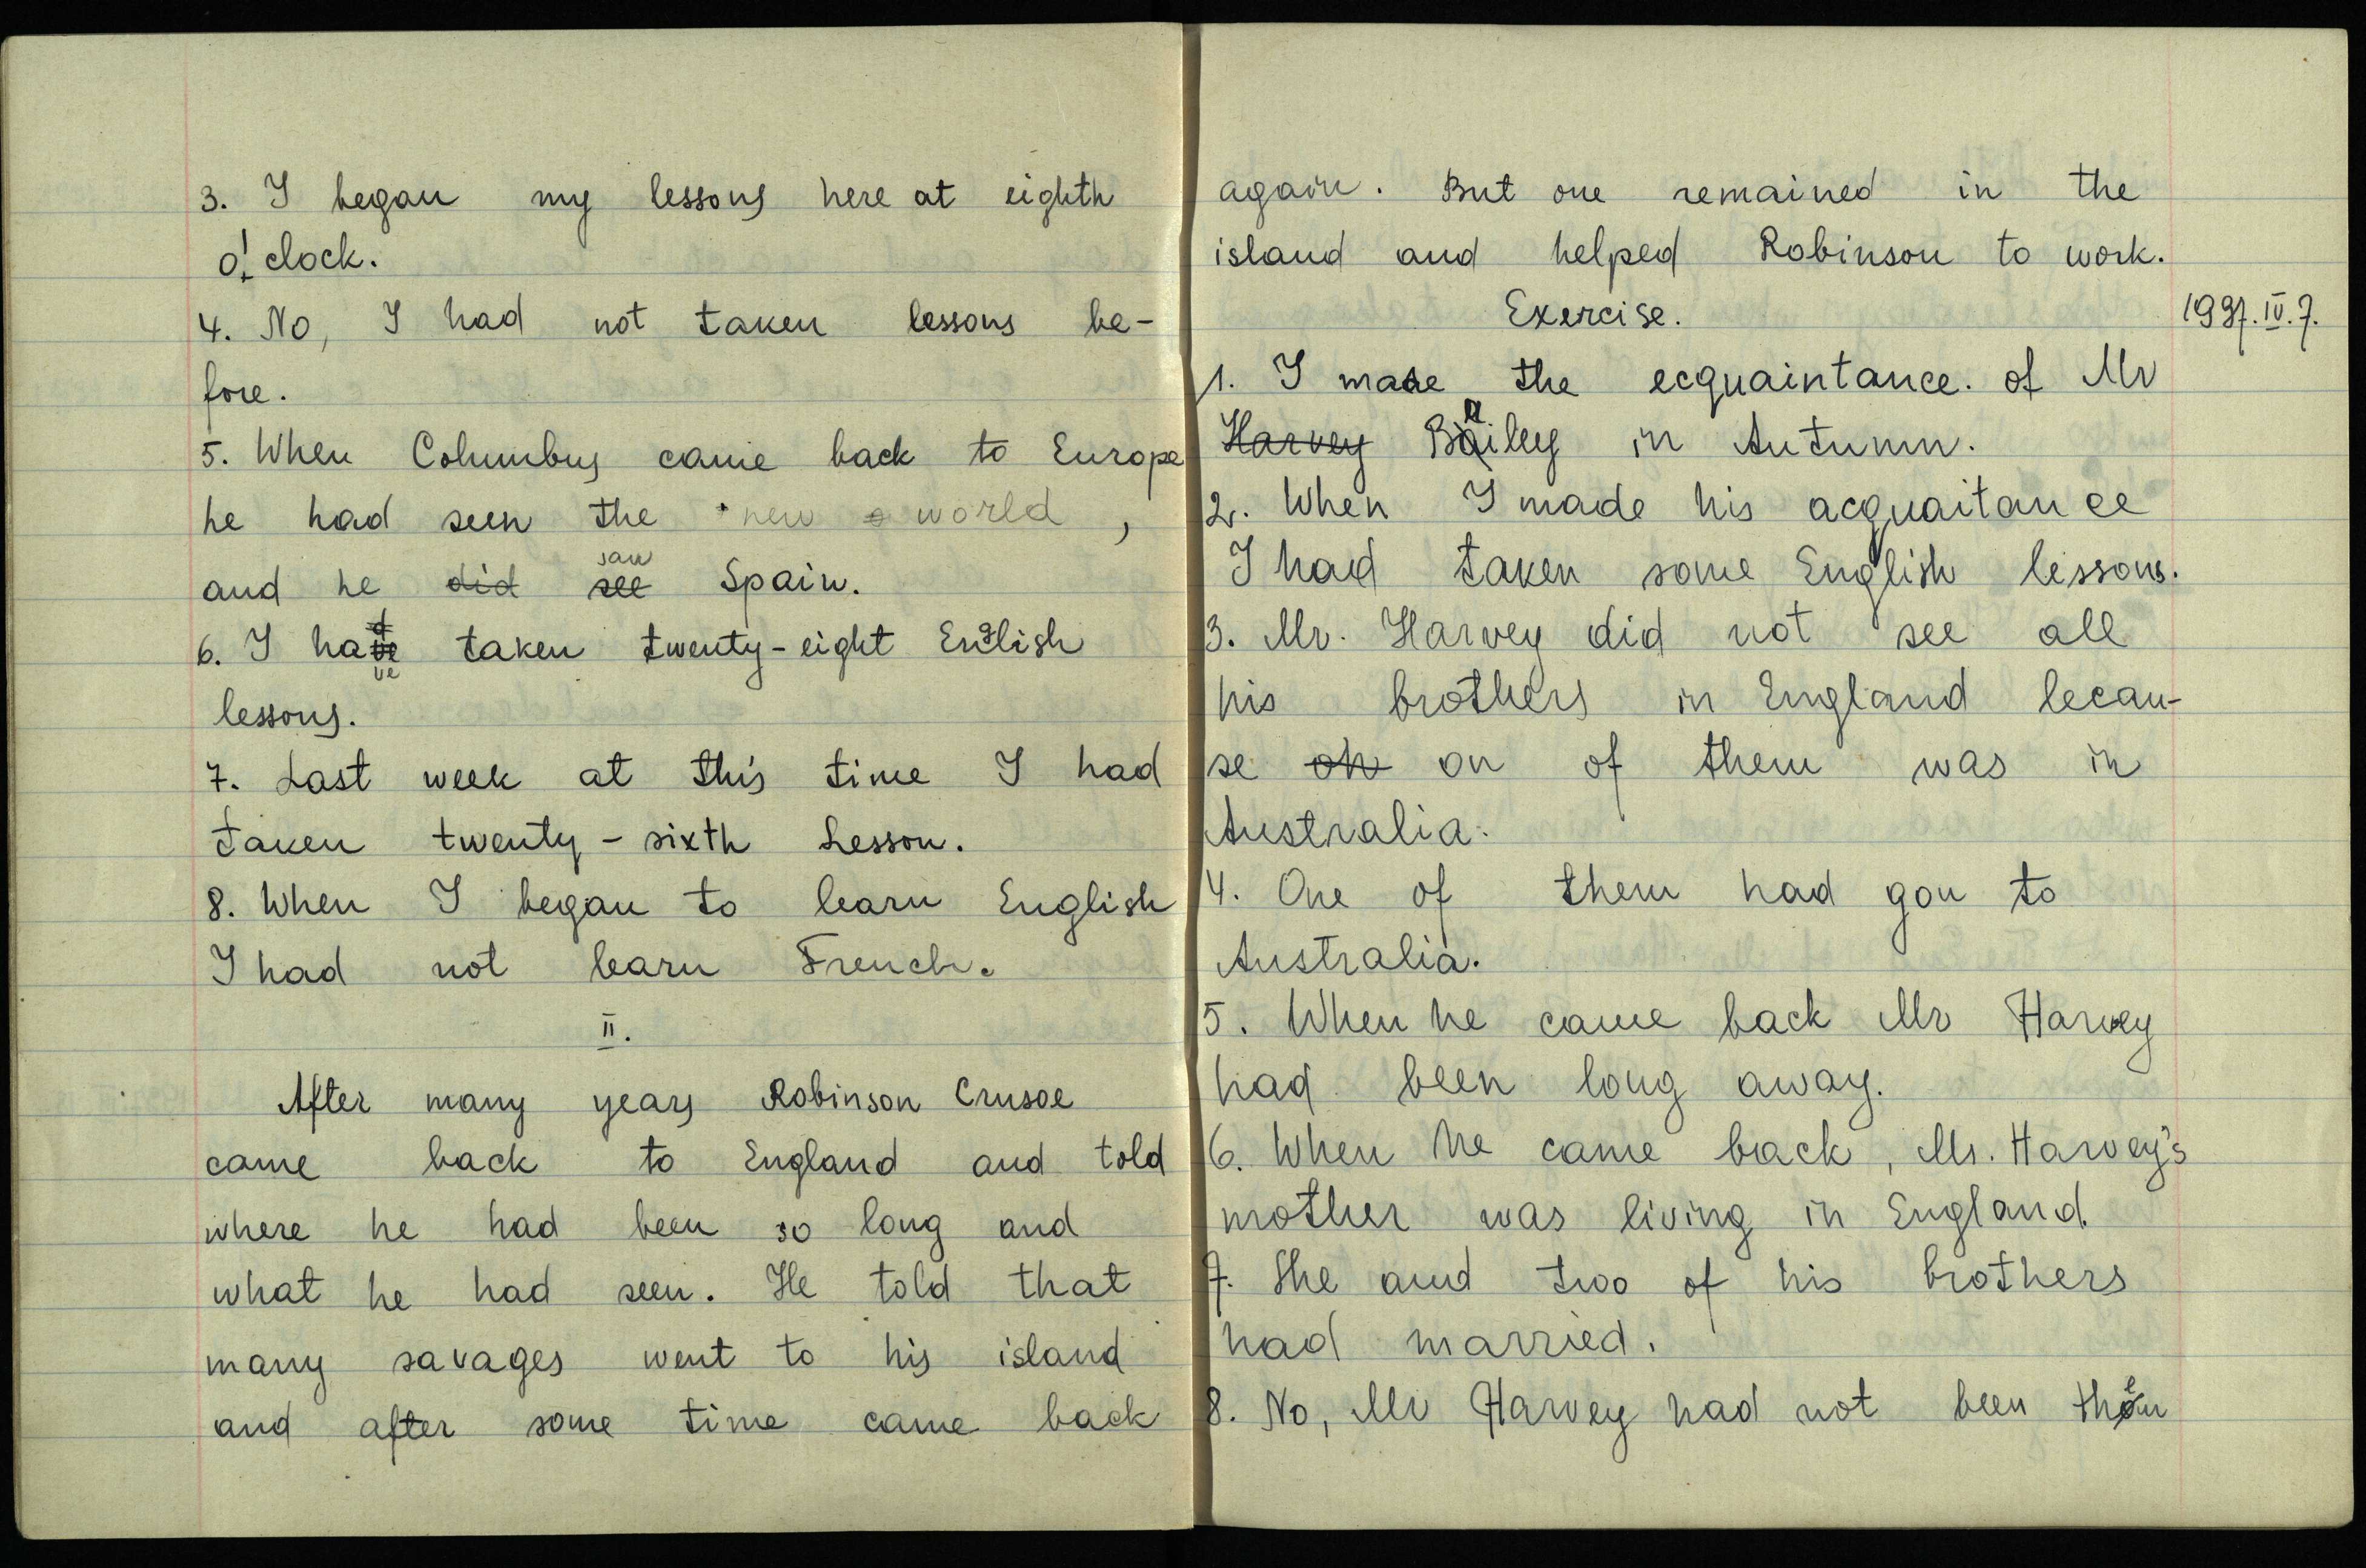 3. I began my lessons here at eighth
o'clock.
4. No, I had not taken lessons be-
fore.
5. When Columbus came back to Europe
he had seen the new world,
and he did see saw Spain.
6. I have taken twenty-eight English
lessons.
7. Last week at this time I had
taken twenty-sixth Lesson.
8. When I began to learn English
I had not learn French.
II.
After many years Robinson Crusoe
came back to England and told
where he had been so long and
what he had seen. He told that
many savages went to his island
and after some time came back
again. But one remained in the
island and helped Robinson to work.
Exercise.
1937.IV.7.
1. I made the ecquaintance. of Mr
Harvey Bailey in Autumn.
2. When I made his acquaitance
I had taken some English lessons.
3. Mr. Harvey did not see all
his brothers in England becau-
se on on of them was in
Australia.
4. One of them had gon to
Australia.
5. When he came back Mr Harvey
had been long away.
6. When he came back, Mr. Harvey's
mother was living in England.
7. She and two of his brothers
had married.
8. No, Mr Harvey had not been then